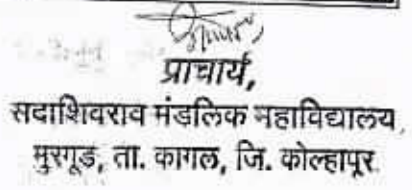 प्राचार्य,
सदाशिवराव मंडलिक महाविद्यालय,
मुरगूड, ता. कागल, जि. कोल्हापूर